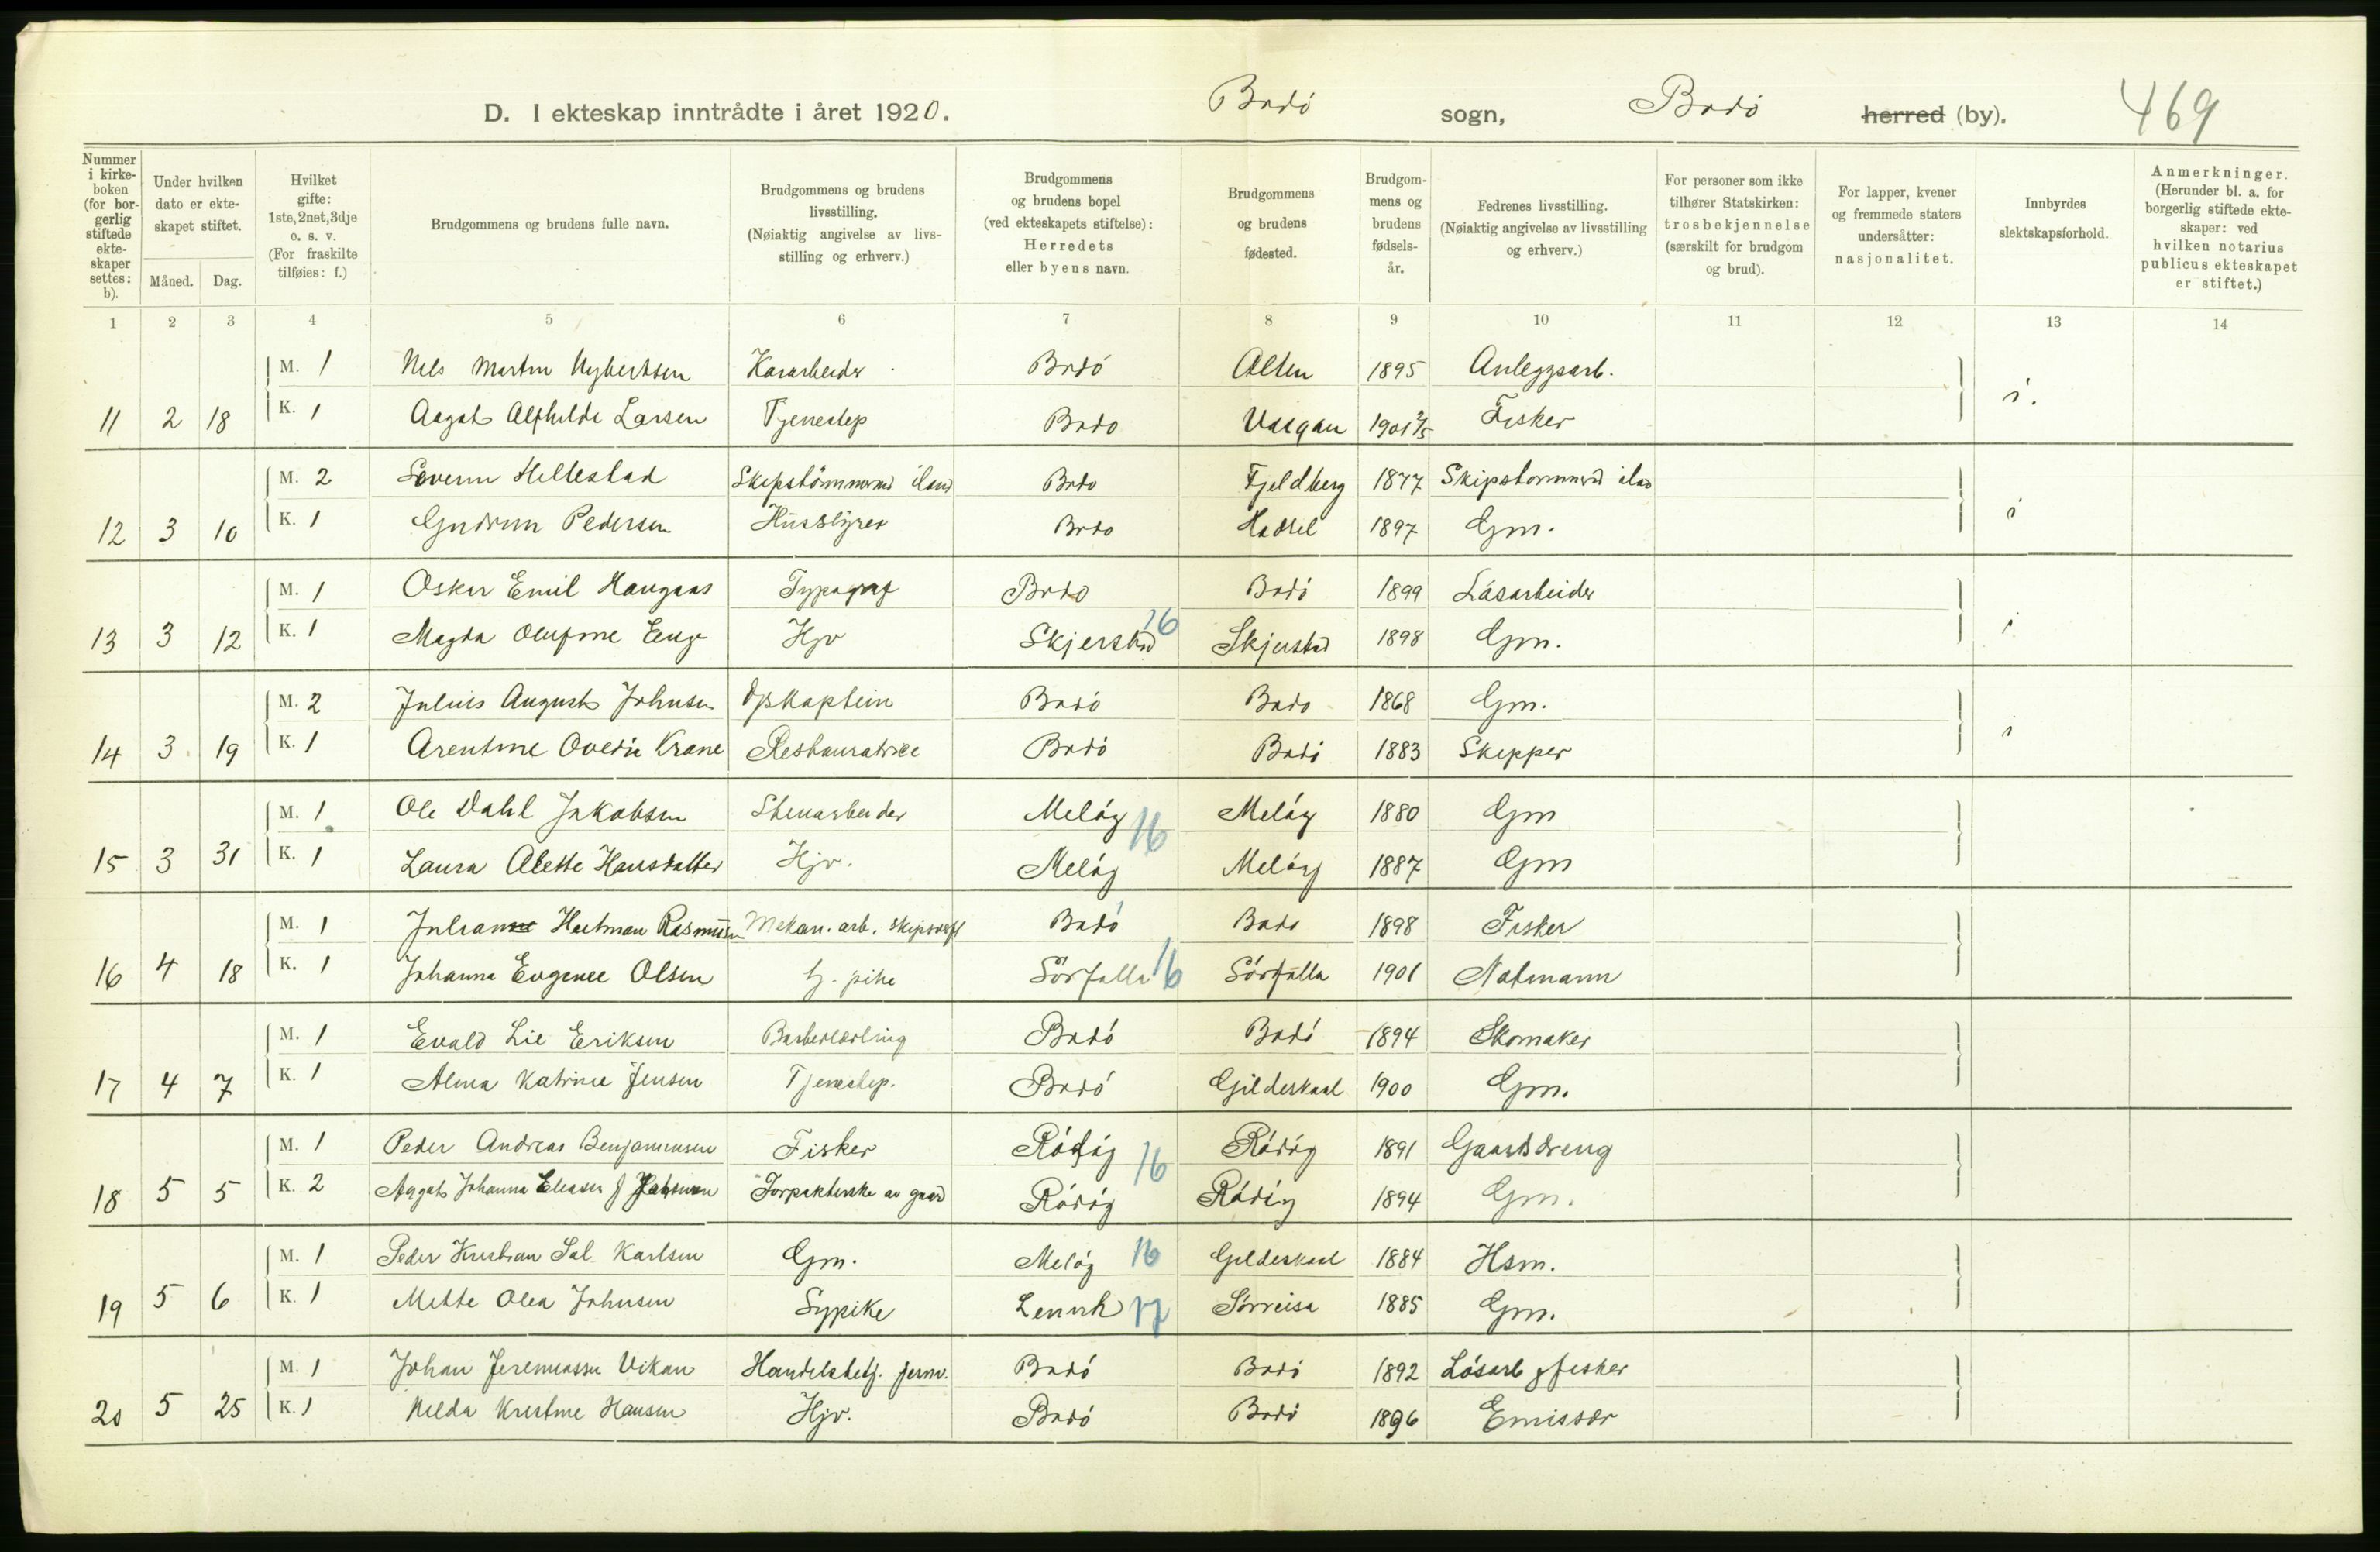 D. I ekteskap inntrådte i året 1920. Bodö sogn, Bodö herred (by). 469
Nummer i kirkeboken (for borgerlig stiftede ekteskaper settes: b).
Under hvilken dato er ekteskapet stiftet.
Måned. Dag.
Hvilket gifte: 1ste, 2net, 3dje o. s. v. (For fraskilte tilføies: f.)
Brudgommens og brudens fulle navn.
Brudgommens og brudens livsstilling. (Nøiaktig angivelse av livsstilling og erhverv.)
Brudgommens og brudens bopel (ved ekteskapets stiftelse): Herredets eller byens navn.
Brudgommens og brudens fødested.
Brudgommens og brudens fødselsår.
Fedrenes livsstilling. (Nøiaktig angivelse av livsstilling og erhverv.)
For personer som ikke tilhører Statskirken: trosbekjennelse (særskilt for brudgom og brud).
For lapper, kvener og fremmede staters undersåtter: nasjonalitet.
Innbyrdes slektskapsforhold.
Anmerkninger. (Herunder bl. a. for borgerlig stiftede ekteskaper: ved hvilken notarius publicus ekteskapet er stiftet.)
1 2 3 4 5 6 7 8 9 10 11 12 13 14
M. 1 Nels Martin Nybertsen Bodö Alten 1895 Anleggsarb.
11 2 18 K. 1 Aagot Alfhilde Larsen Tjenestep Bodo Vaagan 1901 2/5 Fisker i.
M. 2 Severin Hellestad Skipstömmermd iland Bodo Fjeldberg 1877 Skipstommermd iland
12 3 10 K. 1 Gudrun Pedersen Husstyrer Bodo Hadsel 1897 Gm. i
M. 1 Oskar Emil Haugaas Typograf Bodo Bodö 1899 Lösarbeider
13 3 12 K. 1 Magda Olufine Enge Hjv Skjerstad 16 Skjerstad 1898 Gm. i
M. 2 Julius August Johnsen Dpskaptein Bodö Bodo 1868 Gm.
14 3 19 K. 1 Arentine Ovedie Krane Restauratrice Bodö Bodö 1883 Skipper i
M. 1 Ole Dahl Jakobsen Stenarbeider Melöy 16 Melöy 1880 Gm
15 3 31 K. 1 Laura Alette Hansdatter Hjv. Melöy Melöy 1887 Gm
M. 1 Julian Hartman Rasmussen Mekan. arb. Bodö Bodo 1898 Fisker
16 4 18 K. 1 Johanna Eugenie Olsen tj. pike Sörfolla 16 Sörfolla 1901 Notmann
M. 1 Evald Lie Eriksen Barberlærling Bodö Bodö 1894 Skomaker
17 4 7 K. 1 Alma Katrine Jensen Tjenestep. Bodö Gildeskaal 1900 Gm.
M. 1 Peder Andreas Benjaminsen Fisker Rödöy 16 Rödöy 1891 Gaardsdreng
18 5 5 K. 2 Aagot Johanna Eleasen f Johnsen Forpakterske av gaard Rödöy Rödöy 1894 Gm.
M. 1 Peder Kristian Sal Karlsen Gm. Melöy 16 Gildeskaal 1884 Hsm.
19 5 6 K. 1 Mette Olea Johnsen Sypike Lenvik 17 Sörreisa 1885 Gm.
M. 1 Johan Jeremiassen Vikan Handelsbetj. jernv. Bodö Bodö 1892 Lösarb & fisker
20 5 25 K. 1 Nelda Kristine Hansen Hjv. Bodö Bodö 1896 Emissær